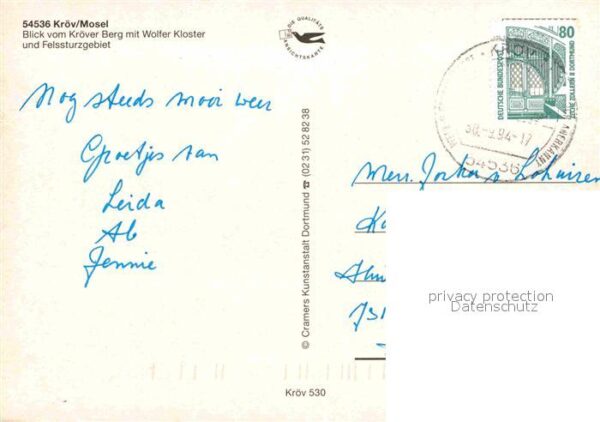 54536 Kröv/Mosel
Blick vom Kröver Berg mit Wolfer Kloster
und Felssturzgebiet
DIE QUALITÄTS
ANSICHTSKARTE
80
DEUTSCHE BUNDESPOST
ZECHE ZOLLERN II DORTMUND
KRÖV
30.-9.94-17
54536
ANERKANNT
Nog steeds mooi weer
Groetjes van
Leida
Ab
Jennie
© Cramers Kunstanstalt Dortmund ☎ (02 31) 52 82 38
privacy protection
Datenschutz
Kröv 530